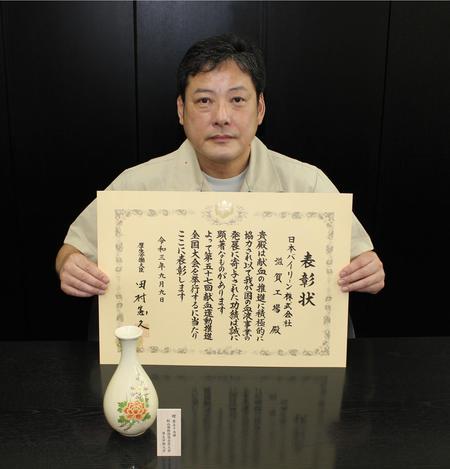 表彰状
日本バイリーン株式会社
滋賀工場 殿
貴殿は献血の推進に積極的に
協力され以て我が国の血液事業の
発展に寄与された功績は誠に
顕著なものがあります
よって第五十七回献血運動推進
全国大会を挙行するに当たり
ここに表彰します
令和三年九月九日
厚生労働大臣 田村憲久